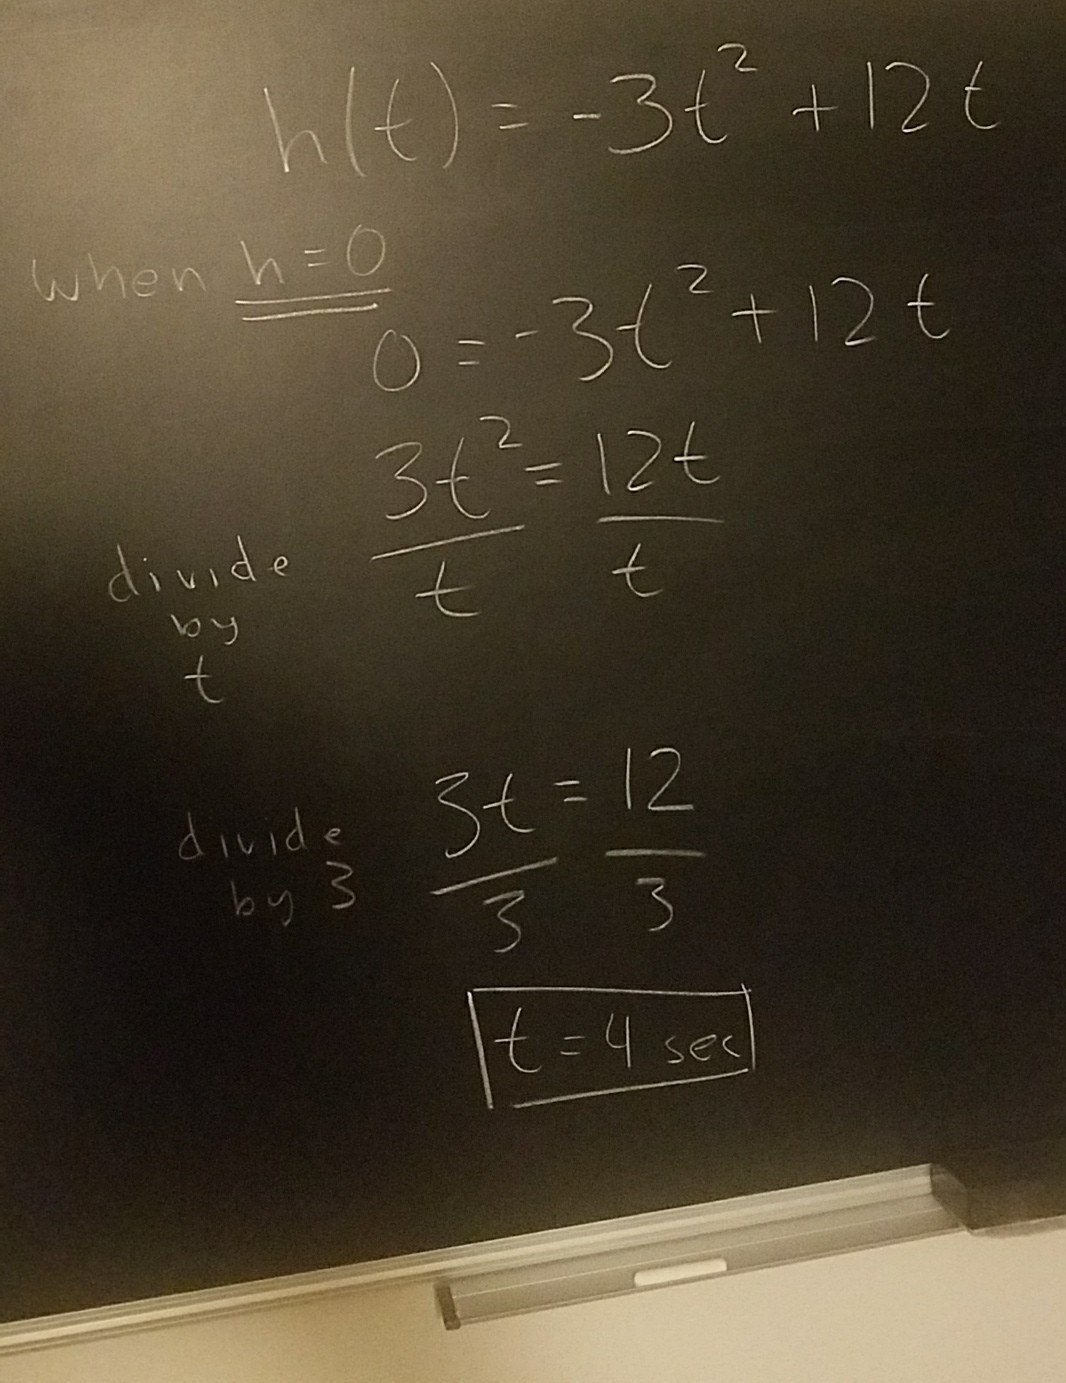 h(t) = -3t² + 12t
when h=0
0 = -3t² + 12t
3t² = 12t
divide by t
t t
3t = 12
divide by 3
3 3
t = 4 sec